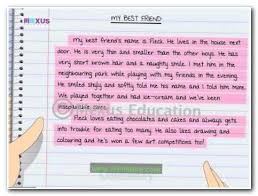 MY BEST FRIEND
My best friend's name is Fleck. He lives in the house next
door. He is very thin and smaller than the other boys. He has
very short brown hair and a naughty smile. I met him in the
neighbouring park while playing with my friends in the evening.
He smiled shyly and softly told me how much I inspired him.
We played together and had ice-cream and we've been
inseparable since.
Fleck loves eating chocolates and cakes and always gets
into trouble for eating too many. He also likes drawing and
colouring and he's won a few art competitions too!